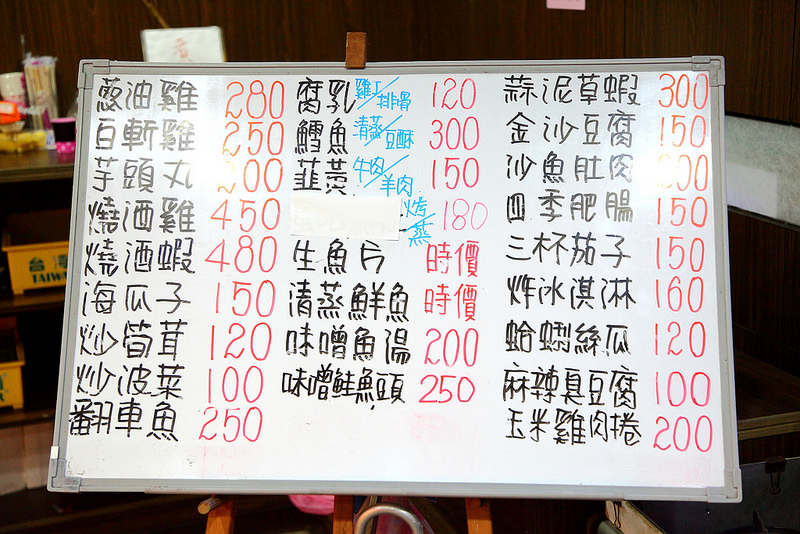 蔥油雞 280
白斬雞 250
芋頭丸 200
燒酒雞 450
燒酒蝦 480
海瓜子 150
炒筍茸 120
炒波菜 100
翻車魚 250
腐乳 雞丁/排骨 120
鱈魚 清蒸/豆酥 300
韮黃 牛肉/羊肉 150
烤/蒸 180
生魚片 時價
清蒸鮮魚 時價
味噌魚湯 200
味噌鮭魚頭 250
蒜泥草蝦 300
金沙豆腐 150
沙魚肚肉 200
四季肥腸 150
三杯茄子 150
炸冰淇淋 160
蛤蠣絲瓜 120
麻辣臭豆腐 100
玉米雞肉捲 200